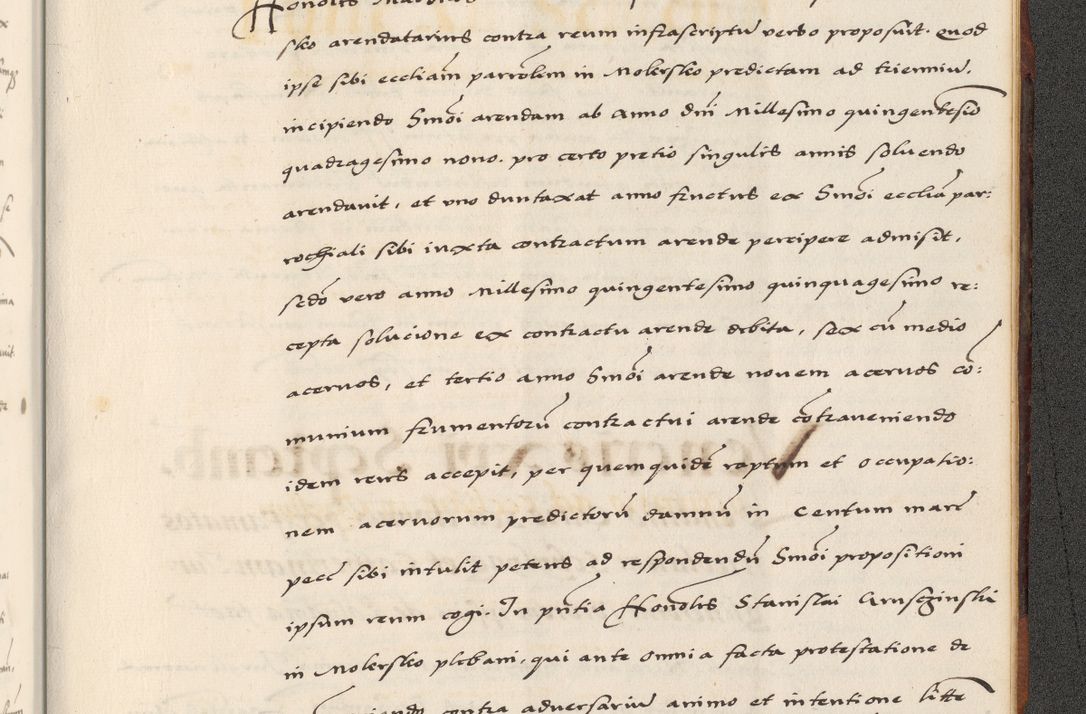 sko arendatarius contra reum infrascriptū verbo proposuit. Quod
ipse sibi eccliam parrolem in Molersko predictam ad trienniū.
incipiendo Smōi arendam ab Anno Dñi Millesimo quingentesio
quadragesimo nono. pro certo pretio singulis annis soluendo
arendauit, et vno duntaxat anno fructus ex Smōi ecclīa par:
rochiali sibi iuxta contractum arende percipere admisit,
sedō vero anno Millesimo quingentesimo quinquagesimo re:
cepta solucione ex contractu arende debita, sex cū medio
acervos, et tertio anno Smōi arende novem acervos cō:
munium frumentorū contractui arende cōtraveniendo
idem reus accepit, per quemquidē raptum et occupatio:
nem acervorum predictorū damnū in Centum marc̄
pecc̄ sibi intulit petens ad respondendū Smōi propositioni
ipsum reum cogi. In pn̄tia Honolis Stanislai Gruszinski
in Molersko plebani, qui ante omnia facta protestatione de
contra adversariū animo et intentione litte